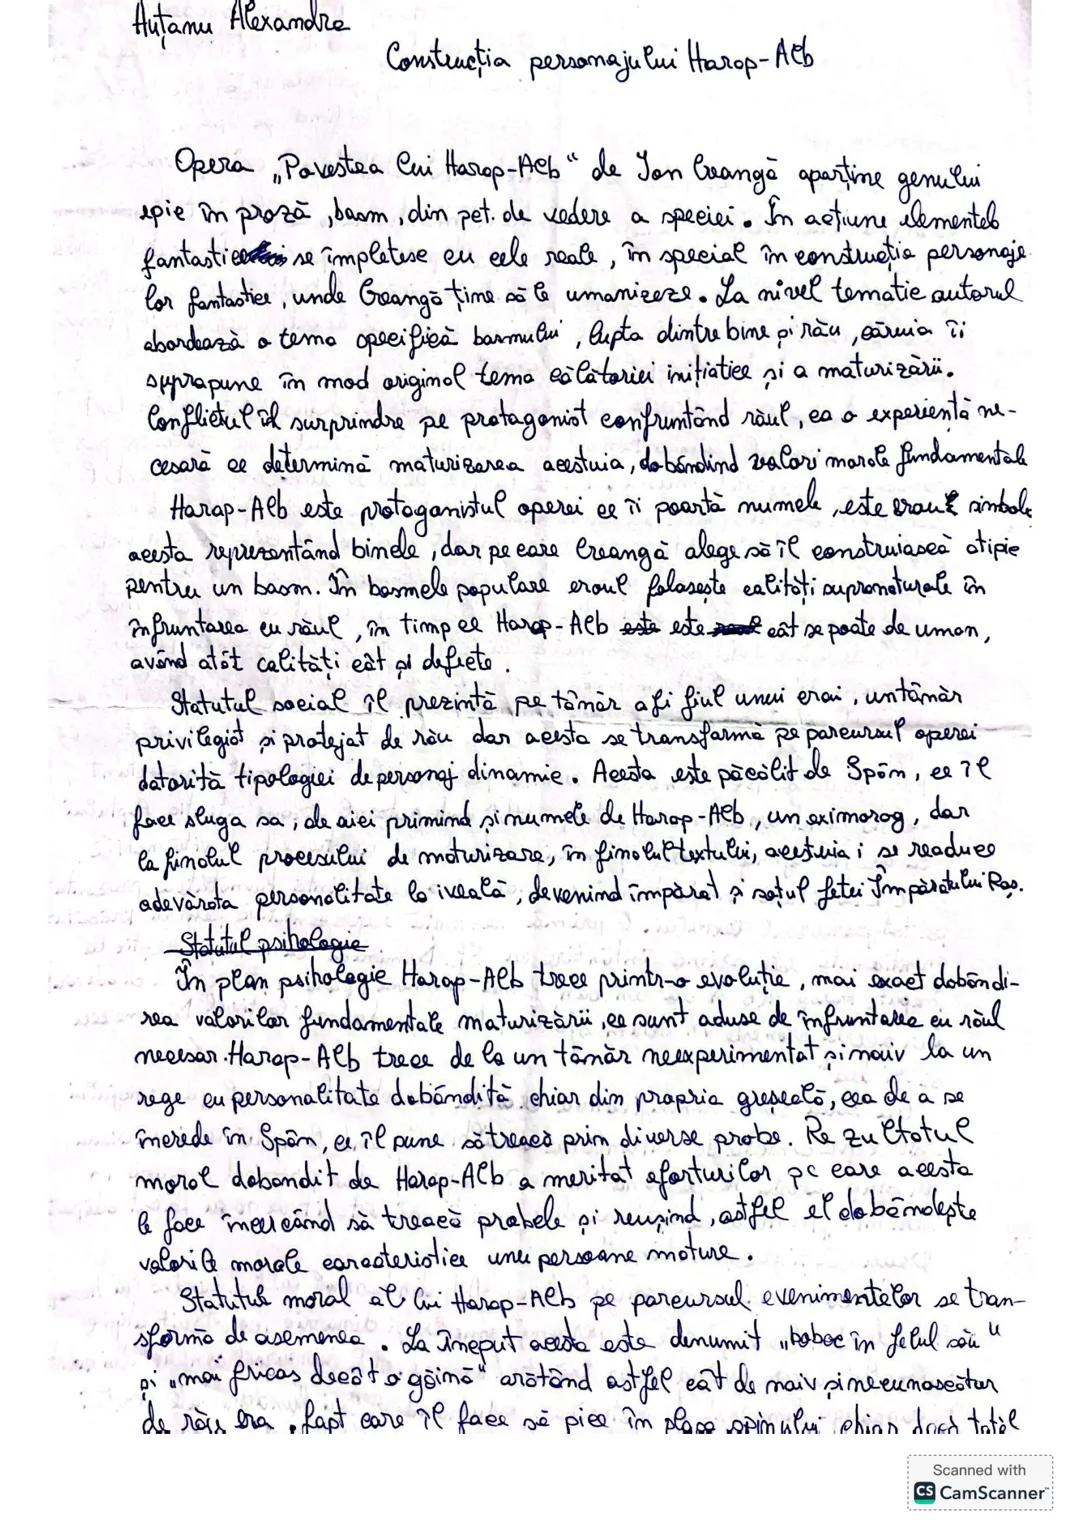 Huțanu Alexandra
Construcția personajului Harap-Alb
Opera „Povestea lui Harap-Alb" de Ion Creangă aparține genului
epic în proză, basm, din pct. de vedere a speciei. În acțiune elementele
fantastice se împletesc cu cele reale, în special în construcția personaje
lor fantastice, unde Creangă ține să le umanizeze. La nivel tematic autorul
abordează o temă specifică basmului, lupta dintre bine și rău, căruia îi
suprapune în mod original tema călătoriei inițiatice și a maturizării.
Conflictul îl surprindre pe protagonist confruntând răul, ca o experiență ne-
cesară ce determină maturizarea acestuia, dobândind valori morale fundamentale
Harap-Alb este protagonistul operei ce îi poartă numele, este eroul simbol
acesta reprezentând binele, dar pe care Creangă alege să îl construiască atipic
pentru un basm. În basmele populare eroul folosește calități supranaturale în
înfruntarea cu răul, în timp ce Harap-Alb este este cât se poate de uman,
având atât calități cât și defecte.
Statutul social îl prezintă pe tânăr a fi fiul unui crai, un tânăr
privilegiat și protejat de rău dar acesta se transformă pe parcursul operei
datorită tipologiei de personaj dinamic. Acesta este păcălit de Spân, ce îl
face sluga sa, de aici primind și numele de Harap-Alb, un oximorog, dar
la finalul procesului de maturizare, în finalul textului, acestuia i se readuce
adevărata personalitate la iveală, devenind împărat și soțul fetei Împăratului Roș.
Statutul psihologic
În plan psihologic Harap-Alb trece printr-o evoluție, mai exact dobândi-
rea valorilor fundamentale maturizării, ce sunt aduse de înfruntarea cu răul
necesar. Harap-Alb trece de la un tânăr neexperimentat și naiv la un
rege cu personalitate dobândită chiar din propria greșeală, cea de a se
încrede în Spân, ce îl pune să treacă prin diverse probe. Rezultatul
moral dobandit de Harap-Alb a meritat eforturilor pe care acesta
le face încercând să treacă probele și reușind, astfel el dobândește
valorile morale caracteristice unei persoane mature.
Statutul moral al lui Harap-Alb pe parcursul evenimentelor se tran-
sformă de asemenea. La început acesta este denumit „boboc în felul său"
și „mai fricos decât o găină" arătând astfel cât de naiv și necunoscător
de rău era, fapt care îl face să pice în plasa spinului chiar dacă tatăl
Scanned with
CS CamScanner